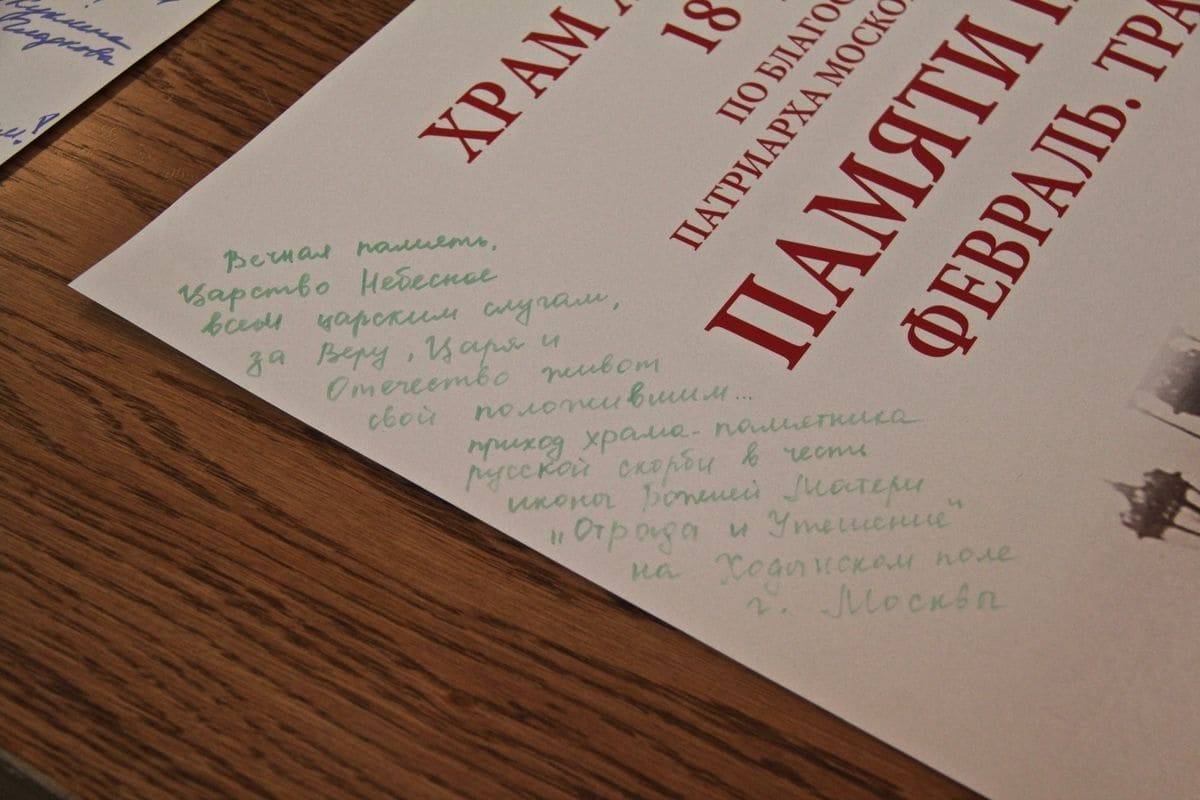 ХРАМ
18
ПО БЛАГОС
ПАТРИАРХА МОСКО
ПАМЯТИ
ФЕВРАЛЬ. ТРА
Вечная память,
Царство Небесное
всем царским слугам,
за Веру, Царя и
Отечество живот
свой положившим...
приход храма-памятника
русской скорби в честь
иконы Божией Матери
"Отрада и Утешение"
на Ходынском поле
г. Москвы